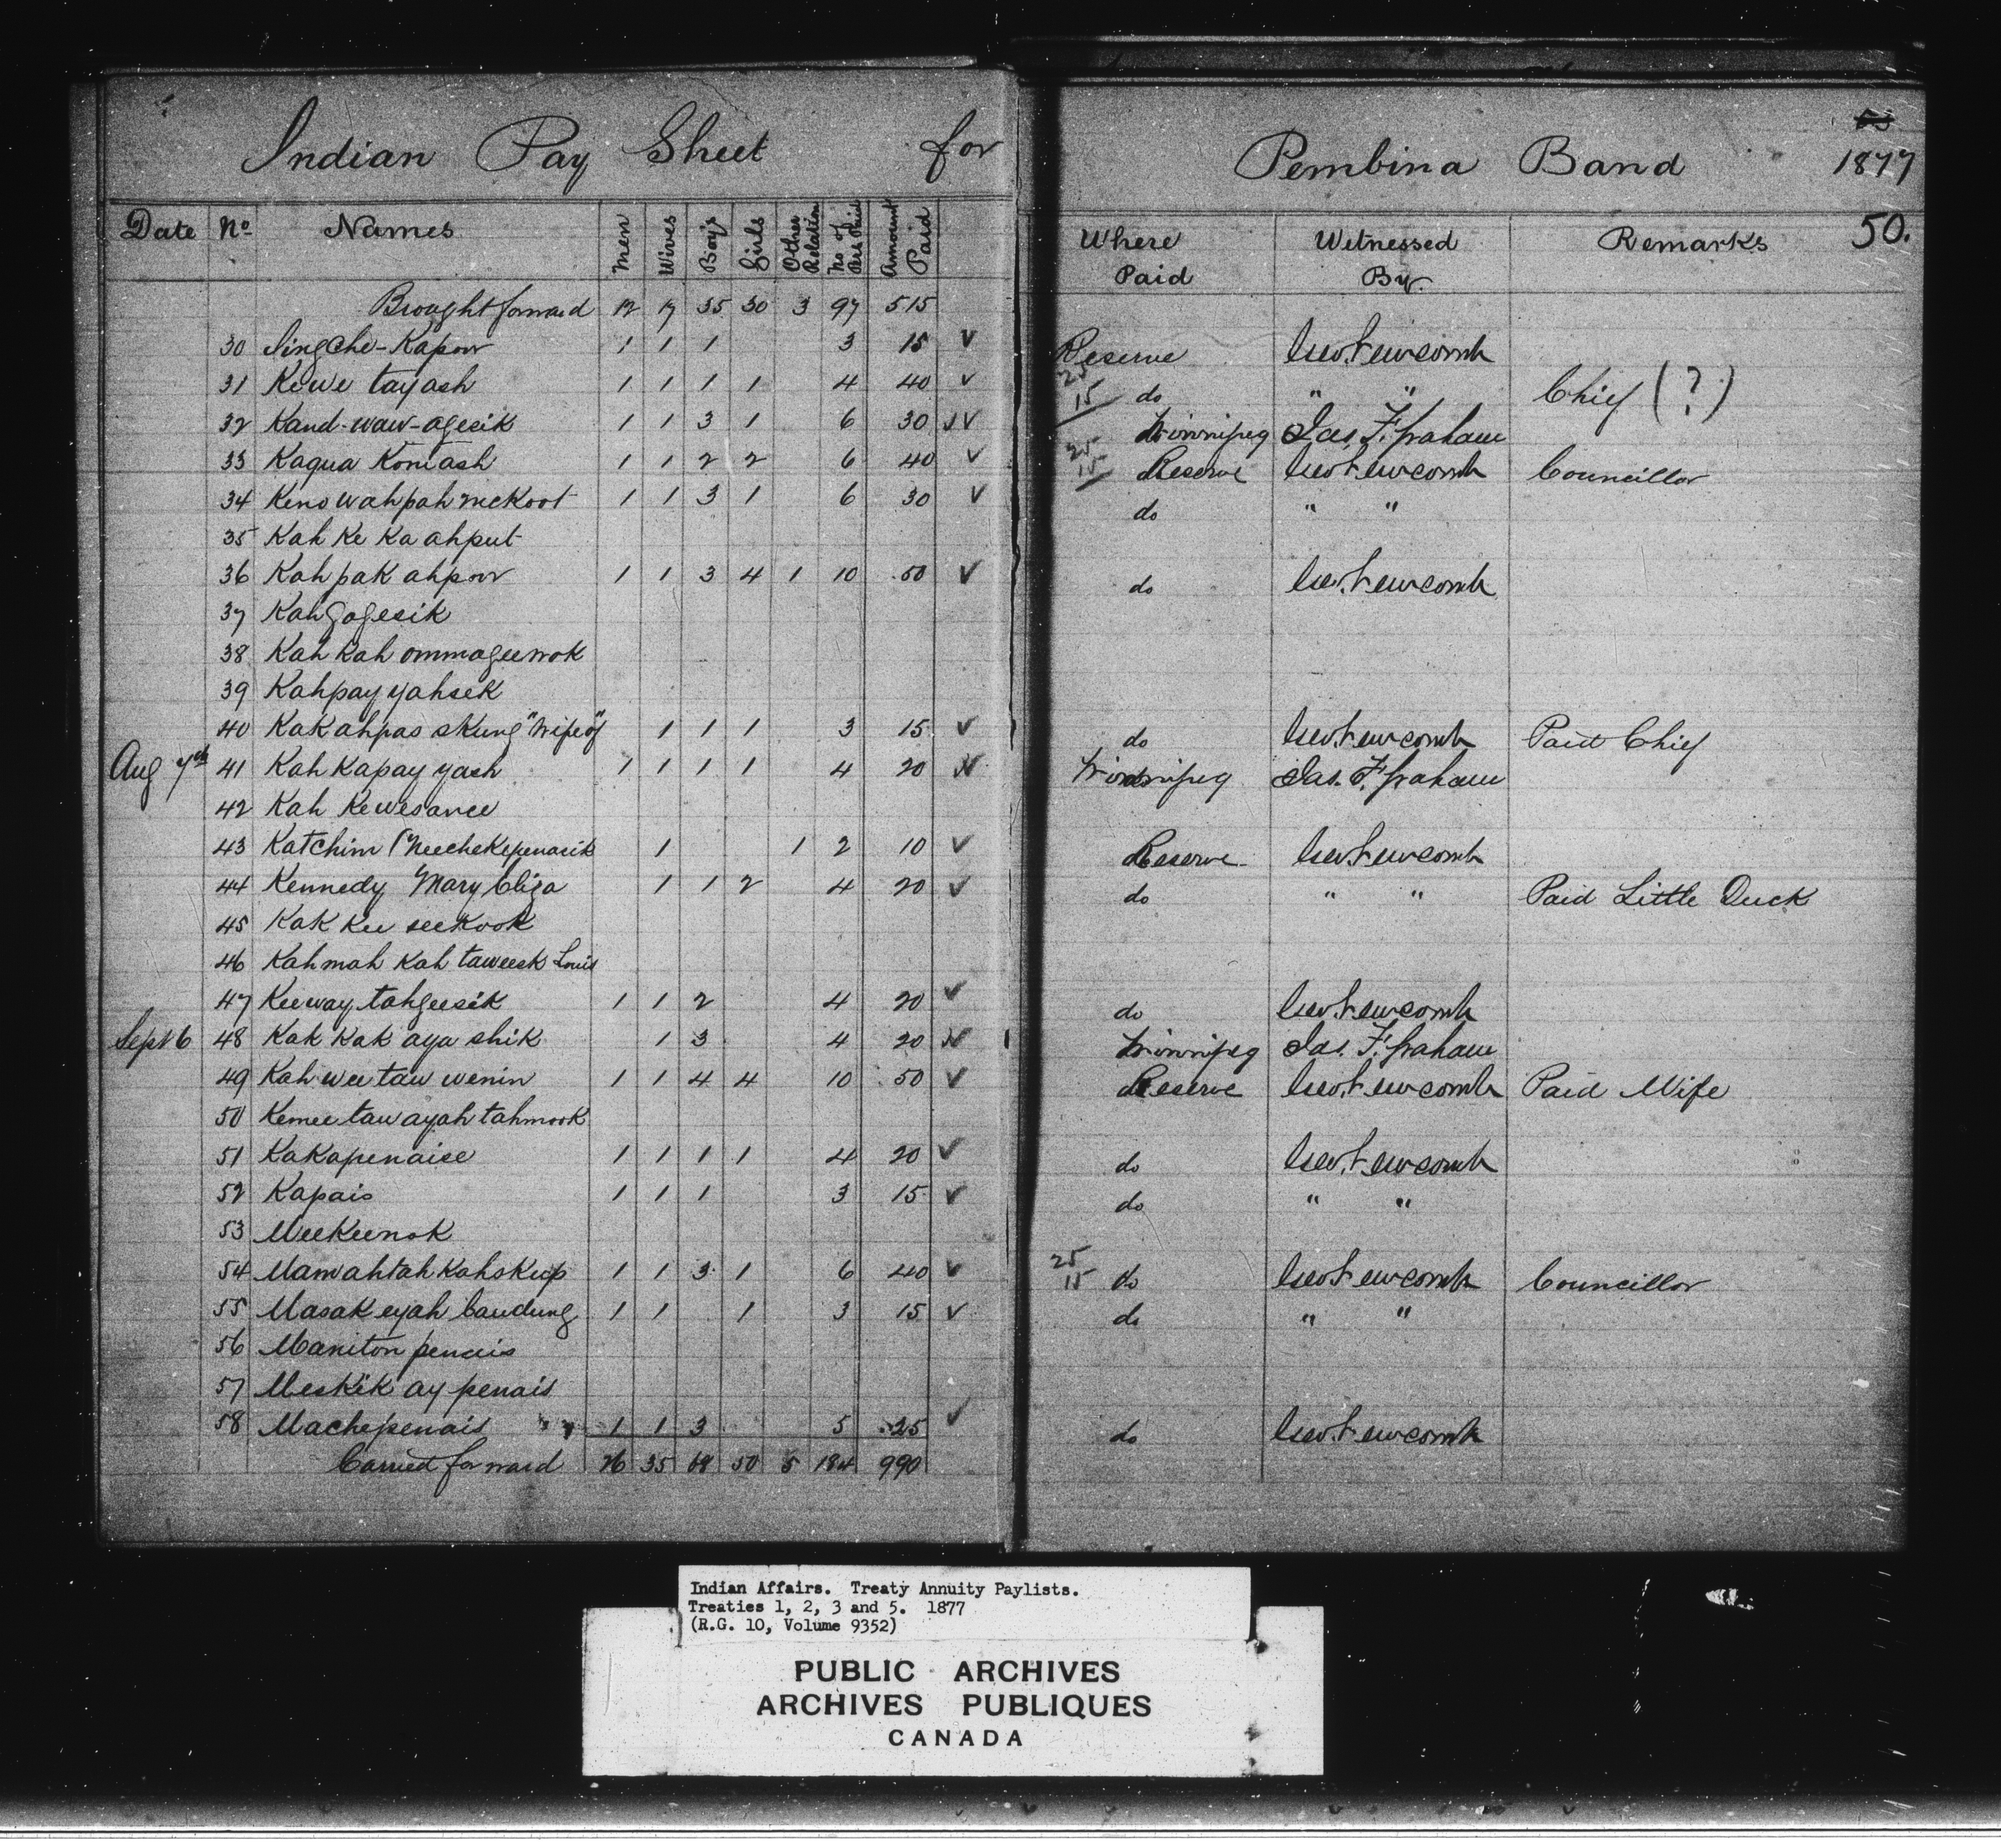 Indian Pay Sheet for Pembina Band 1877
50.
Date No. Names Men Wives Boys Girls Other Relation No of Pers Paid Amount Paid Where Paid Witnessed By Remarks
Brought forward 12 17 35 30 3 97 515
30 1 1 1 3 15 v Reserve Geo. Newcomb
31 Kewe tayash 1 1 1 1 4 40 v 25 15 do " " Chief (?)
32 Kand-waw-agesik 1 1 3 1 6 30 v Winnipeg Jas. F. Graham
33 Kagua Komash 1 1 2 2 6 40 v 25 15 Reserve Geo Newcomb Councillor
34 Keno wahpah mekoot 1 1 3 1 6 30 v do " "
35 Kah Ke Ka ahput
36 Kah pak ahpow 1 1 3 4 1 10 50 v do Geo. Newcomb
37 Kahgogesik
38 Kah Kah ommageewok
39 Kahpay yahsek
40 Kak ahpas skung "Wife of" 1 1 1 3 15 v do Geo Newcomb Paid Chief
Aug 7th 41 Kah Kapay yash 1 1 1 1 4 20 Winnipeg Jas. F. Graham
42 Kah Kewesance
43 Katchim (Neechekepenasik 1 1 2 10 v Reserve Geo Newcomb
44 Kennedy Mary Eliza 1 1 2 4 20 v do " " Paid Little Duck
45 Kak Kee seekook
46 Kah mah Kah taweesk Louis
47 Keeway tahgeesik 1 1 2 4 20 v do Geo. Newcomb
Sept 6 48 Kak Kak aya shik 1 3 4 20 Winnipeg Jas. F. Graham
49 Kah wee taw wenin 1 1 4 4 10 50 v Reserve Geo. Newcomb Paid Wife
50 Kemee taw ayah tahmook
51 Kakapenaise 1 1 1 1 4 20 v do Geo. Newcomb
52 Kapais 1 1 1 3 15 v do " "
53 Meekeenok
54 Mamahtah Kahskup 1 1 3 1 6 40 v 25 15 do Geo Newcomb Councillor
55 Masak eyah 1 1 1 3 15 v do " "
56 Maniton penais
57 Meskik ay penais
58 Machepenais 1 1 3 5 25 v do Geo. Newcomb
Carried forward 26 35 68 50 5 184 990
Indian Affairs. Treaty Annuity Paylists.
Treaties 1, 2, 3 and 5. 1877
(R.G. 10, Volume 9352)
PUBLIC ARCHIVES
ARCHIVES PUBLIQUES
CANADA